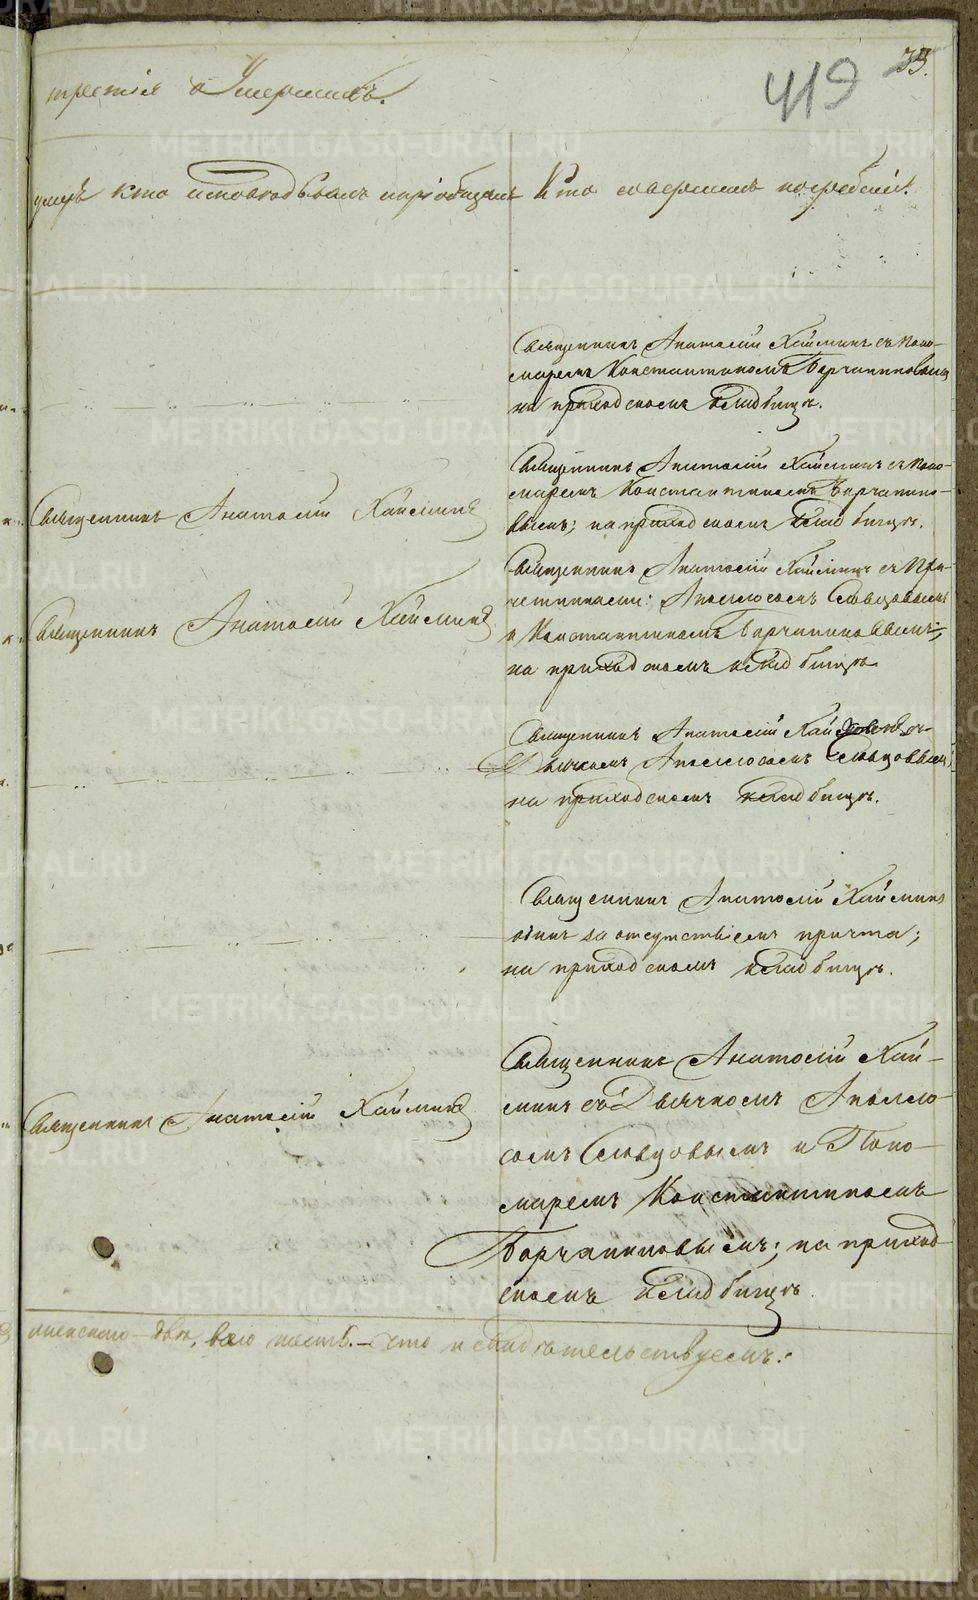 419
33.
третія о Умершихъ.
умеръ Кто исповѣдывалъ и пріобщалъ
Кто совершилъ погребеніе.
Священникъ Анатолій Хайминъ съ Поно-
маремъ Константиномъ
на приходскомъ кладбищѣ.
Священникъ Анатолій Хайминъ
Священникъ Анатолій Хайминъ съ Поно-
маремъ Константиномъ
вымъ; на приходскомъ кладбищѣ.
Священникъ Анатолій Хайминъ
Священникъ Анатолій Хайминъ съ При-
четниками: Аполлосомъ Словцовымъ
и Константиномъ
на приходскомъ кладбищѣ
Священникъ Анатолій съ
Дьячкомъ Аполлосомъ Словцовымъ;
на приходскомъ кладбищѣ.
Священникъ Анатолій Хайминъ
одинъ за отсутствіемъ причта;
на приходскомъ кладбищѣ.
Священникъ Анатолій Хайминъ
Священникъ Анатолій Хай-
минъ съ Дьячкомъ Аполло-
сомъ Словцовымъ и Поно-
маремъ Константиномъ
на приход-
скомъ кладбищѣ.
женскаго – два, всего шесть. – что и свидѣтельствуемъ:
METRIKI.GASO-URAL.RU